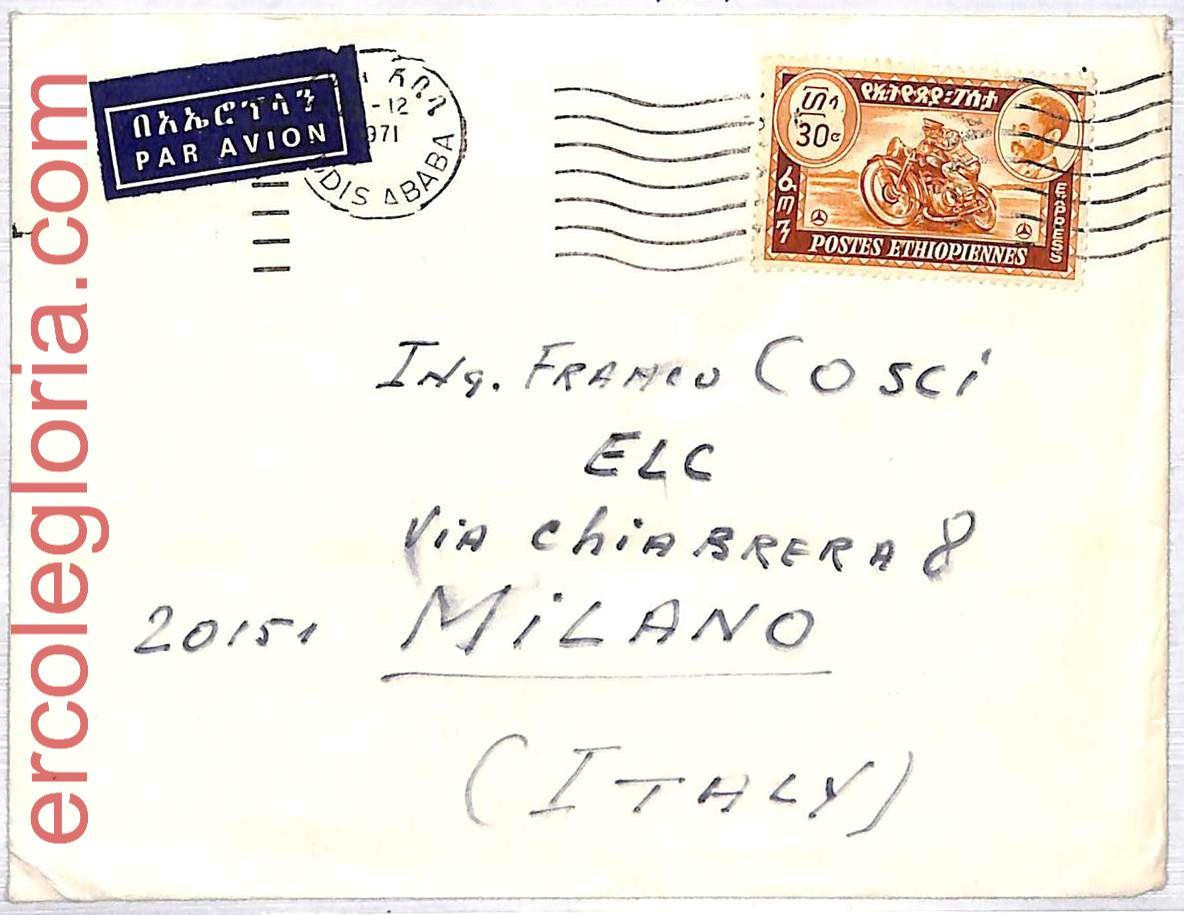 በአኤሮፕላን
PAR AVION
አዲስ አበባ
-12
1971
ADDIS ABABA
የኢትዮጵያ፡ፖስታ
፴ሳ
30c
ፈጣን
EXPRESS
POSTES ETHIOPIENNES
Ing. FRANCO COSCI
ELC
Via ChiABRERA 8
20151 MiLANO
(ITALY)
ercolegloria.com